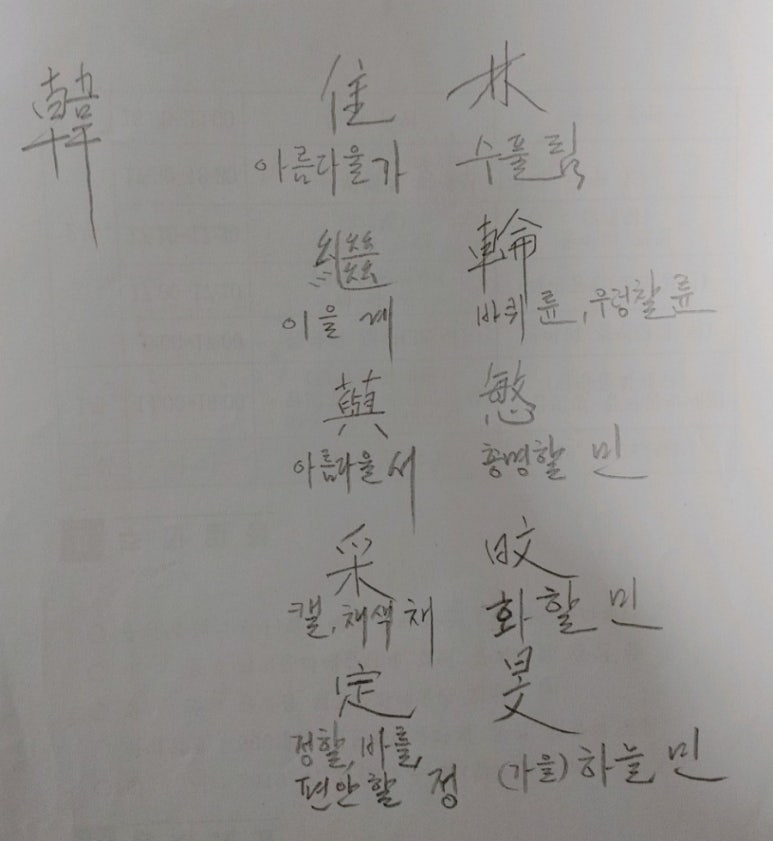 韓
佳 林
아름다울 가 수풀 림
繼 輪
이을 계 바퀴 륜, 우렁찰 륜
慜
아름다울 서 총명할 민
采 旼
캘, 채색 채 화할 민
定 旻
정할, 바를,
편안할 정 (가을) 하늘 민